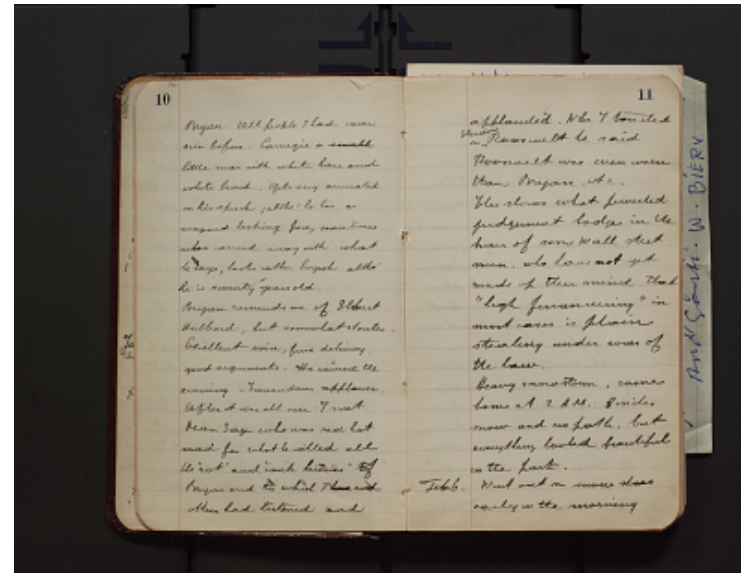 10
Bryan. All people I had never
seen before. Carnegie a small
little man with white hair and
white beard. Gets very animated
in his speech, altho' he has a
looking face, sometimes
when carried away with what
he says, looks rather boyish altho'
he is seventy years old.
Bryan reminds me of Elbert
Hubbard, but somewhat stouter.
Excellent voice, fine delivery,
good arguments. He carried the
evening. Tremendous applause.
After it was all over I met
Dean Sage who was red hot
mad for what he called all
the "rot" and
Bryan and to which I had and
others had listened and
11
applauded. When I touched
on Roosevelt he said
Roosevelt was even worse
than Bryan etc.
This shows what perverted
judgement lodges in the
of some Wall street
men, who have not yet
made up their mind that
"high financiering" in
most cases is plain
stealing under cover of
the law.
Heavy snowstorm, came
home at 2 A.M. 8 inches
snow and no path, but
everything looked beautiful
in the park.
Feb 6. Went out on snow shoes
early in the morning
W. BIERY